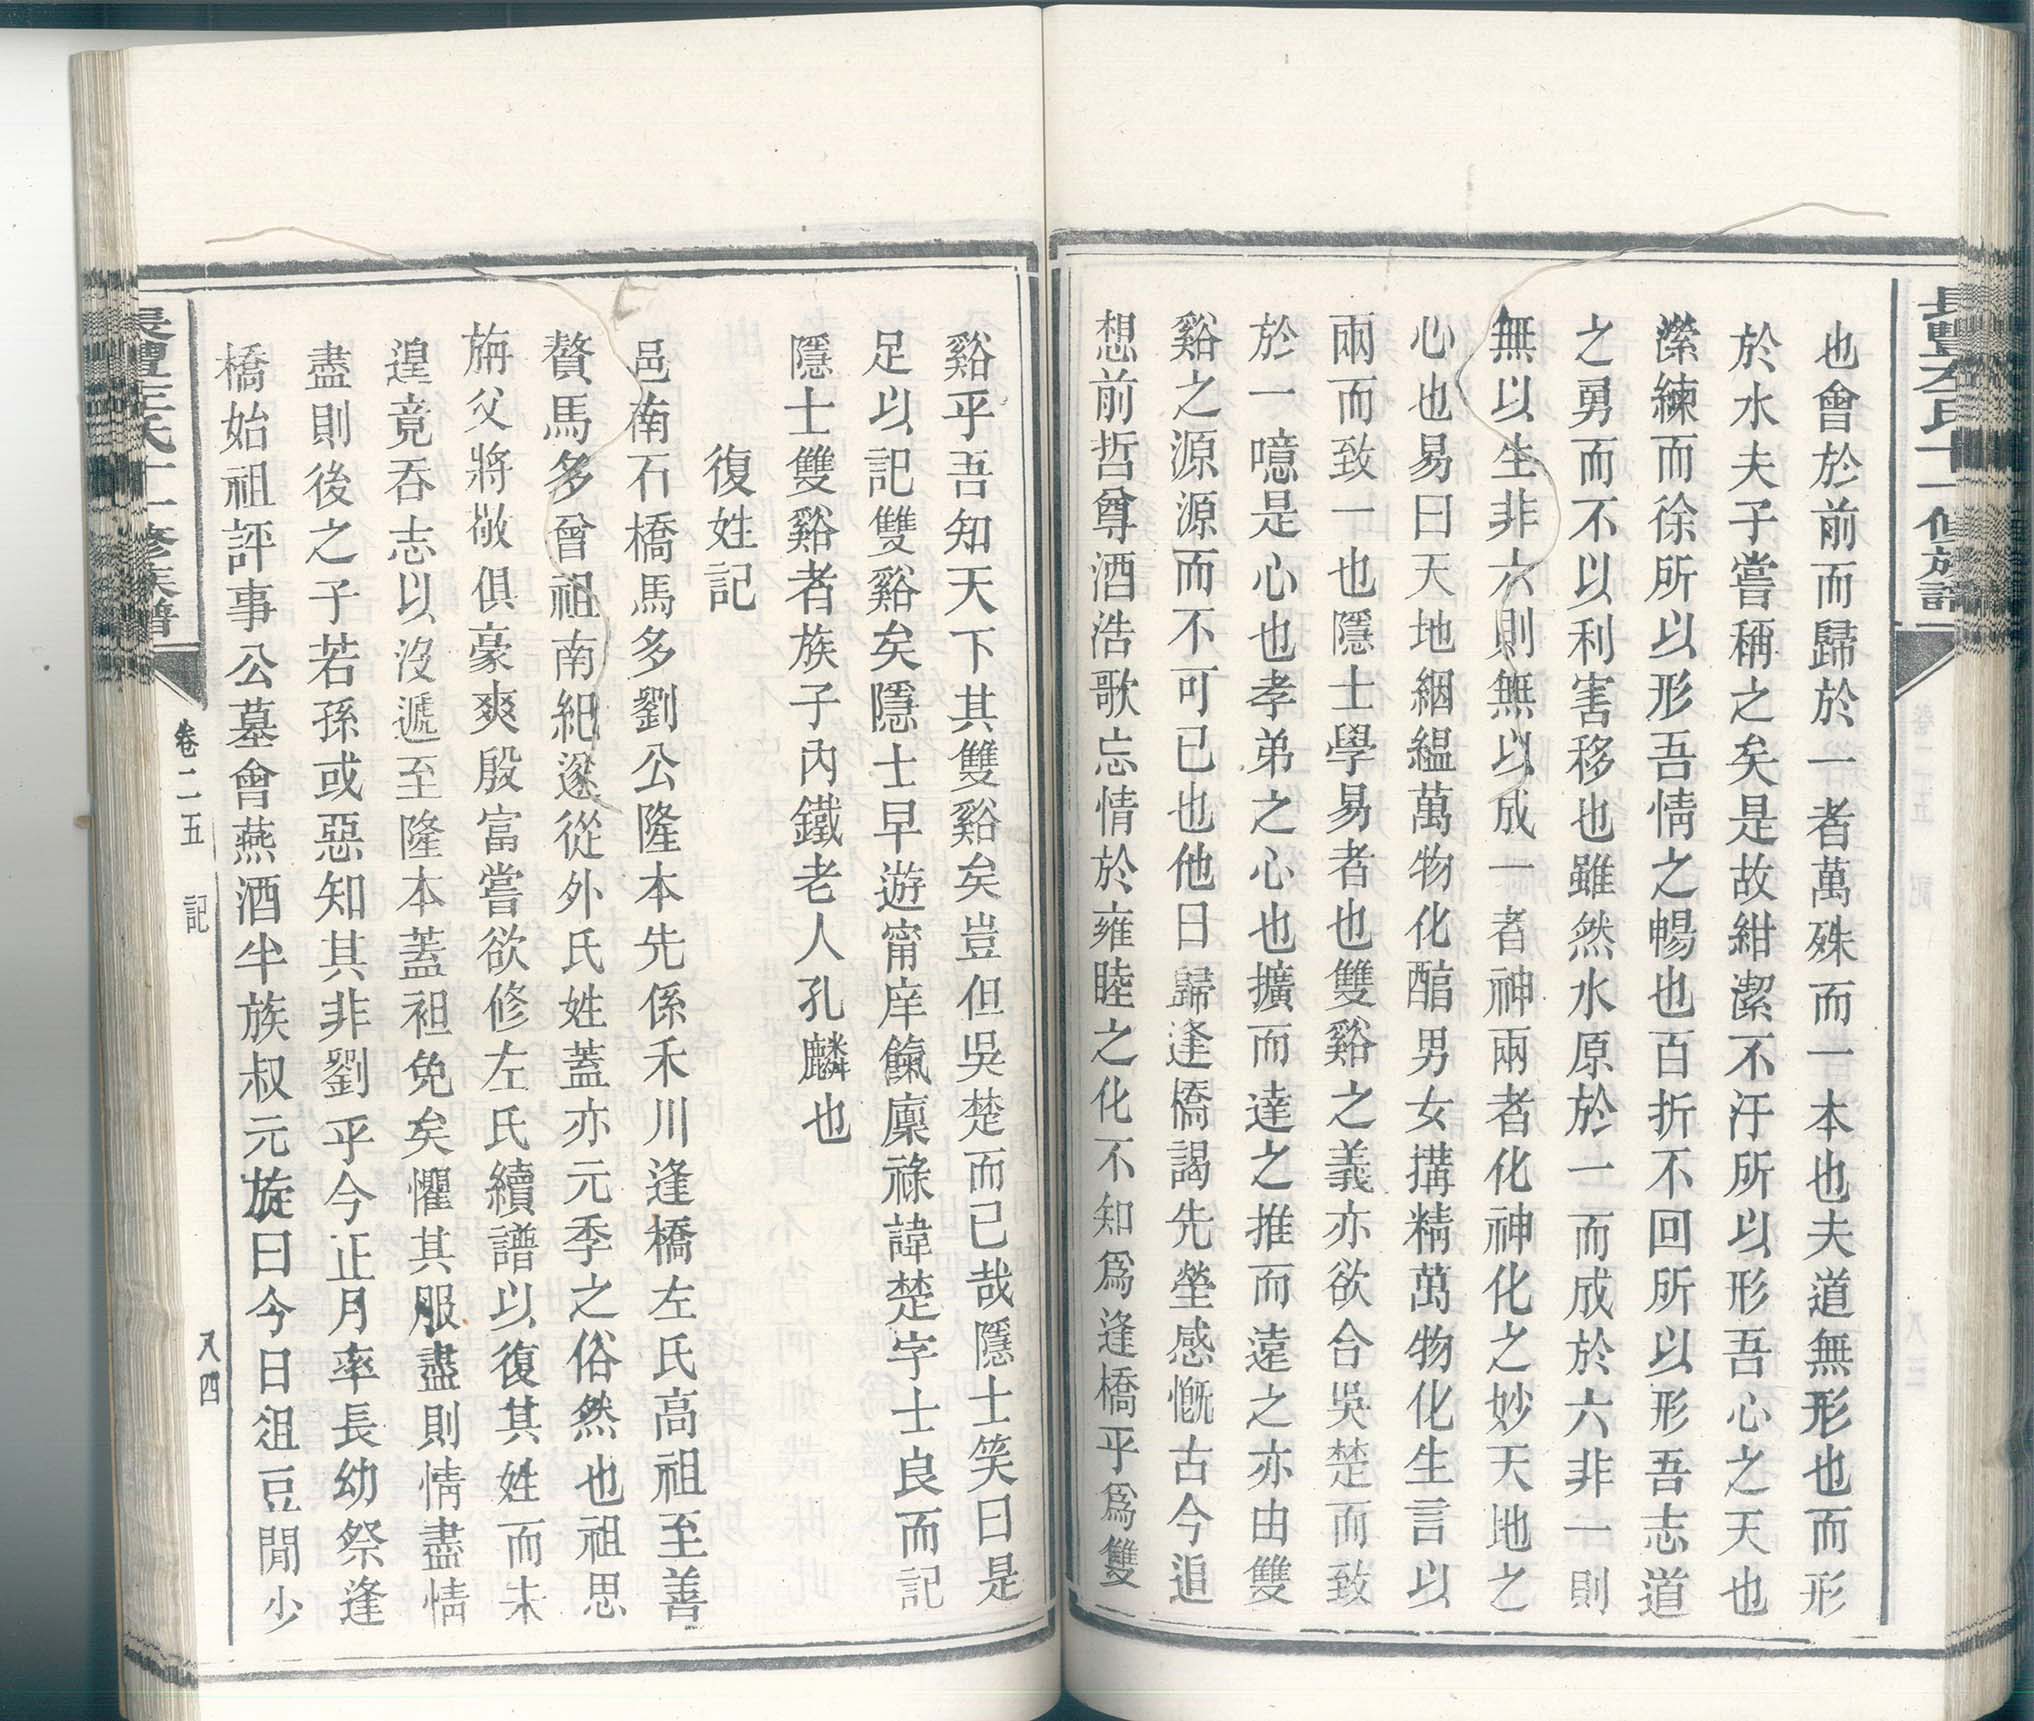 長豐左氏十一修族譜
也會於前而歸於一者萬殊而一本也夫道無形也而形
於水夫子嘗稱之矣是故紺潔不汙所以形吾心之天也
瀠練而徐所以形吾情之暢也百折不回所以形吾志道
之勇而不以利害移也雖然水原於一而成於六非一則
無以生非六則無以成一者神兩者化神化之妙天地之
心也易曰天地絪縕萬物化醕男女搆精萬物化生言以
兩而致一也隱士學易者也雙谿之義亦欲合吳楚而致
於一噫是心也孝弟之心也擴而達之推而遠之亦由雙
谿之源源而不可已也他日歸逢橋謁先塋感慨古今追
想前哲尊酒浩歌忘情於雍睦之化不知爲逢橋乎爲雙
谿乎吾知天下其雙谿矣豈但吳楚而已哉隱士笑曰是
足以記雙谿矣隱士早遊甯庠餼廩祿諱楚字士良而記
隱士雙谿者族子內鐵老人孔麟也
復姓記
邑南石橋馬多劉公隆本先係禾川逢橋左氏高祖至善
贅馬多曾祖南紀遂從外氏姓蓋亦元季之俗然也祖思
旃父將敬俱豪爽殷富嘗欲修左氏續譜以復其姓而未
遑竟吞志以沒遞至隆本蓋袒免矣懼其服盡則情盡情
盡則後之子若孫或惡知其非劉乎今正月率長幼祭逢
橋始祖評事公墓會燕酒半族叔元旋曰今日俎豆閒少
長豐左氏十一修族譜
卷二五 記
八四